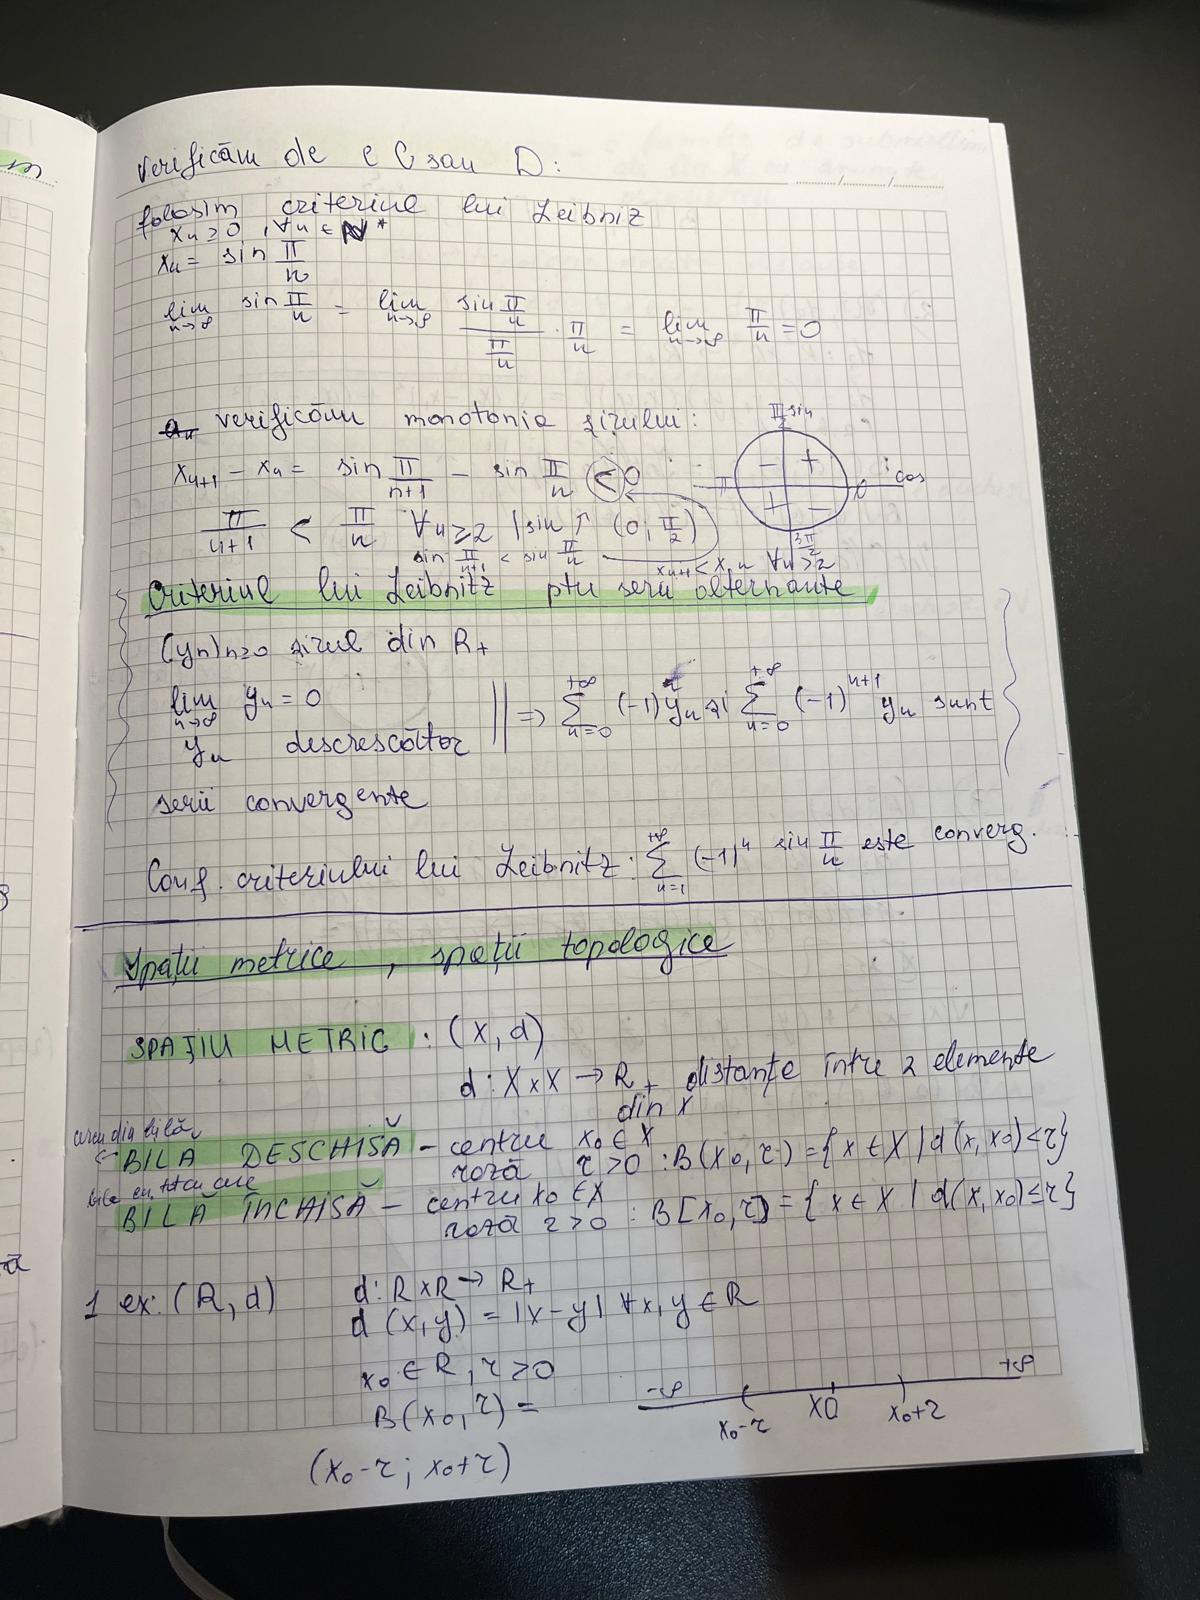 verificăm de e C sau D:
folosim criteriul lui Leibniz
xn ≥ 0, ∀n ∈ N*
xn = sin π/n
lim n→∞ sin π/n = lim n→∞ (sin π/n)/(π/n) · π/n = lim n→∞ π/n = 0
verificăm monotonia șirului:
π/2 sin
xn+1 - xn = sin π/(n+1) - sin π/n < 0
π - + 0 cos
+ -
3π/2
π/(n+1) < π/n ∀n ≥ 2 | sin ↑ (0, π/2)
sin π/(n+1) < sin π/n xn+1 < xn ∀n ≥ 2
Criteriul lui Leibnitz ptu serii alternante
(yn)n≥0 șirul din R+
lim n→∞ yn = 0
yn descrescător || => Σ n=0 +∞ (-1)^n yn și Σ n=0 +∞ (-1)^(n+1) yn sunt
serii convergente
Conf. criteriului lui Leibnitz: Σ n=1 +∞ (-1)^n sin π/n este converg.
Spații metrice, spații topologice
SPAȚIU METRIC : (X, d)
d: X×X → R+ distanțe între 2 elemente
din X
BILA DESCHISĂ - centru x0 ∈ X
rază r > 0 : B(x0, r) = {x ∈ X | d(x, x0) < r}
BILĂ ÎNCHISĂ - centru x0 ∈ X
rază r > 0 : B[x0, r] = {x ∈ X | d(x, x0) ≤ r}
1 ex: (R, d) d: R×R → R+
d(x, y) = |x - y| ∀x, y ∈ R
x0 ∈ R, r > 0
B(x0, r) =
-∞ +∞
x0-r x0 x0+r
(x0-r ; x0+r)